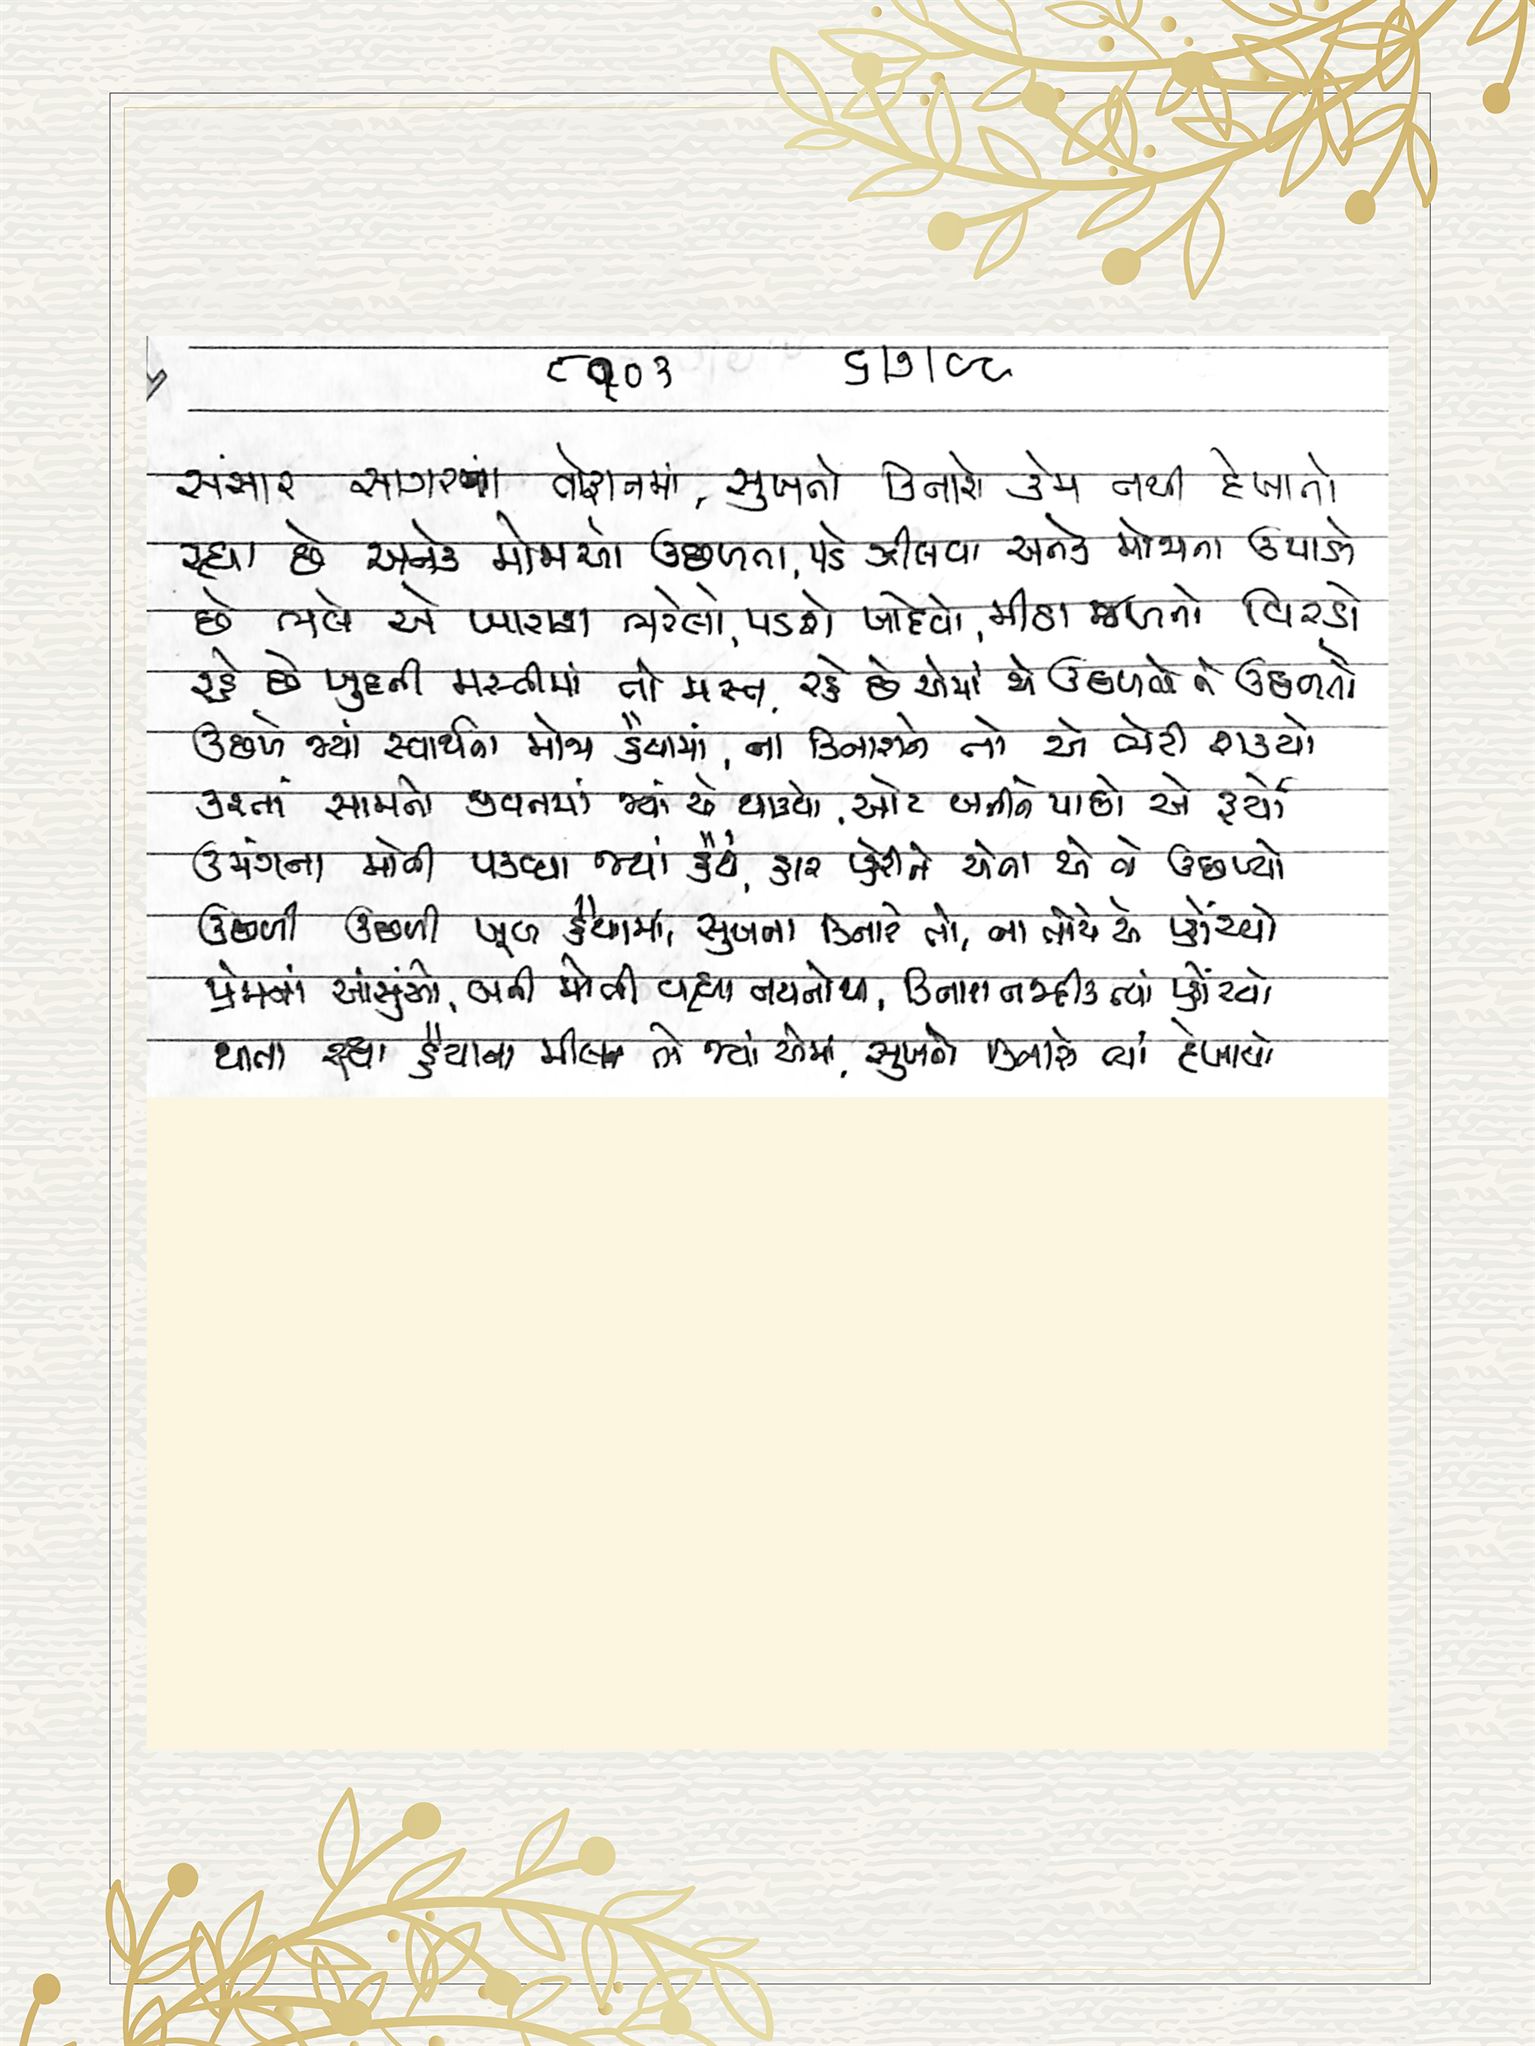 ૮૧૦૩ ૬/૭/૯૯
સંસાર સાગરનાં તોફાનમાં, સુખનો કિનારો કેમ નથી દેખાતો
રહ્યા છે અનેક મોજાઓ ઉછળતા, પડે ઝીલવા અનેક મોજાના ઉપાડો
છે ભલે એ ખારાશ ભરેલો, પડશે ખોદવો, મીઠા જળનો વિરડો
રહે છે ખુદની મસ્તીમાં તો મસ્ત, રહે છે એમાં એ ઉછળતો ને ઉછળતો
ઉછળે જ્યાં સ્વાર્થના મોજા હૈયામાં, ના કિનારાને તો એ ભેટી શક્યો
કરતાં સામનો જીવનમાં જ્યાં એ થાક્યો, ઓટ બનીને પાછો એ ફર્યો
ઉમંગના મોતી પકવ્યા જ્યાં હૈયે, હાર પહેરીને એના એ તો ઉછળ્યો
ઉછળી ઉછળી ખૂબ હૈયામાં, સુખના કિનારે તો, ના તોયે એ પહોંચ્યો
પ્રેમનાં આંસુઓ, બની મોતી વહ્યા નયનોથી, કિનારા નજદીક ત્યાં પહોંચ્યો
થાતા રહ્યા હૈયાના મીલન તો જ્યાં એમાં, સુખનો કિનારો ત્યાં દેખાયો